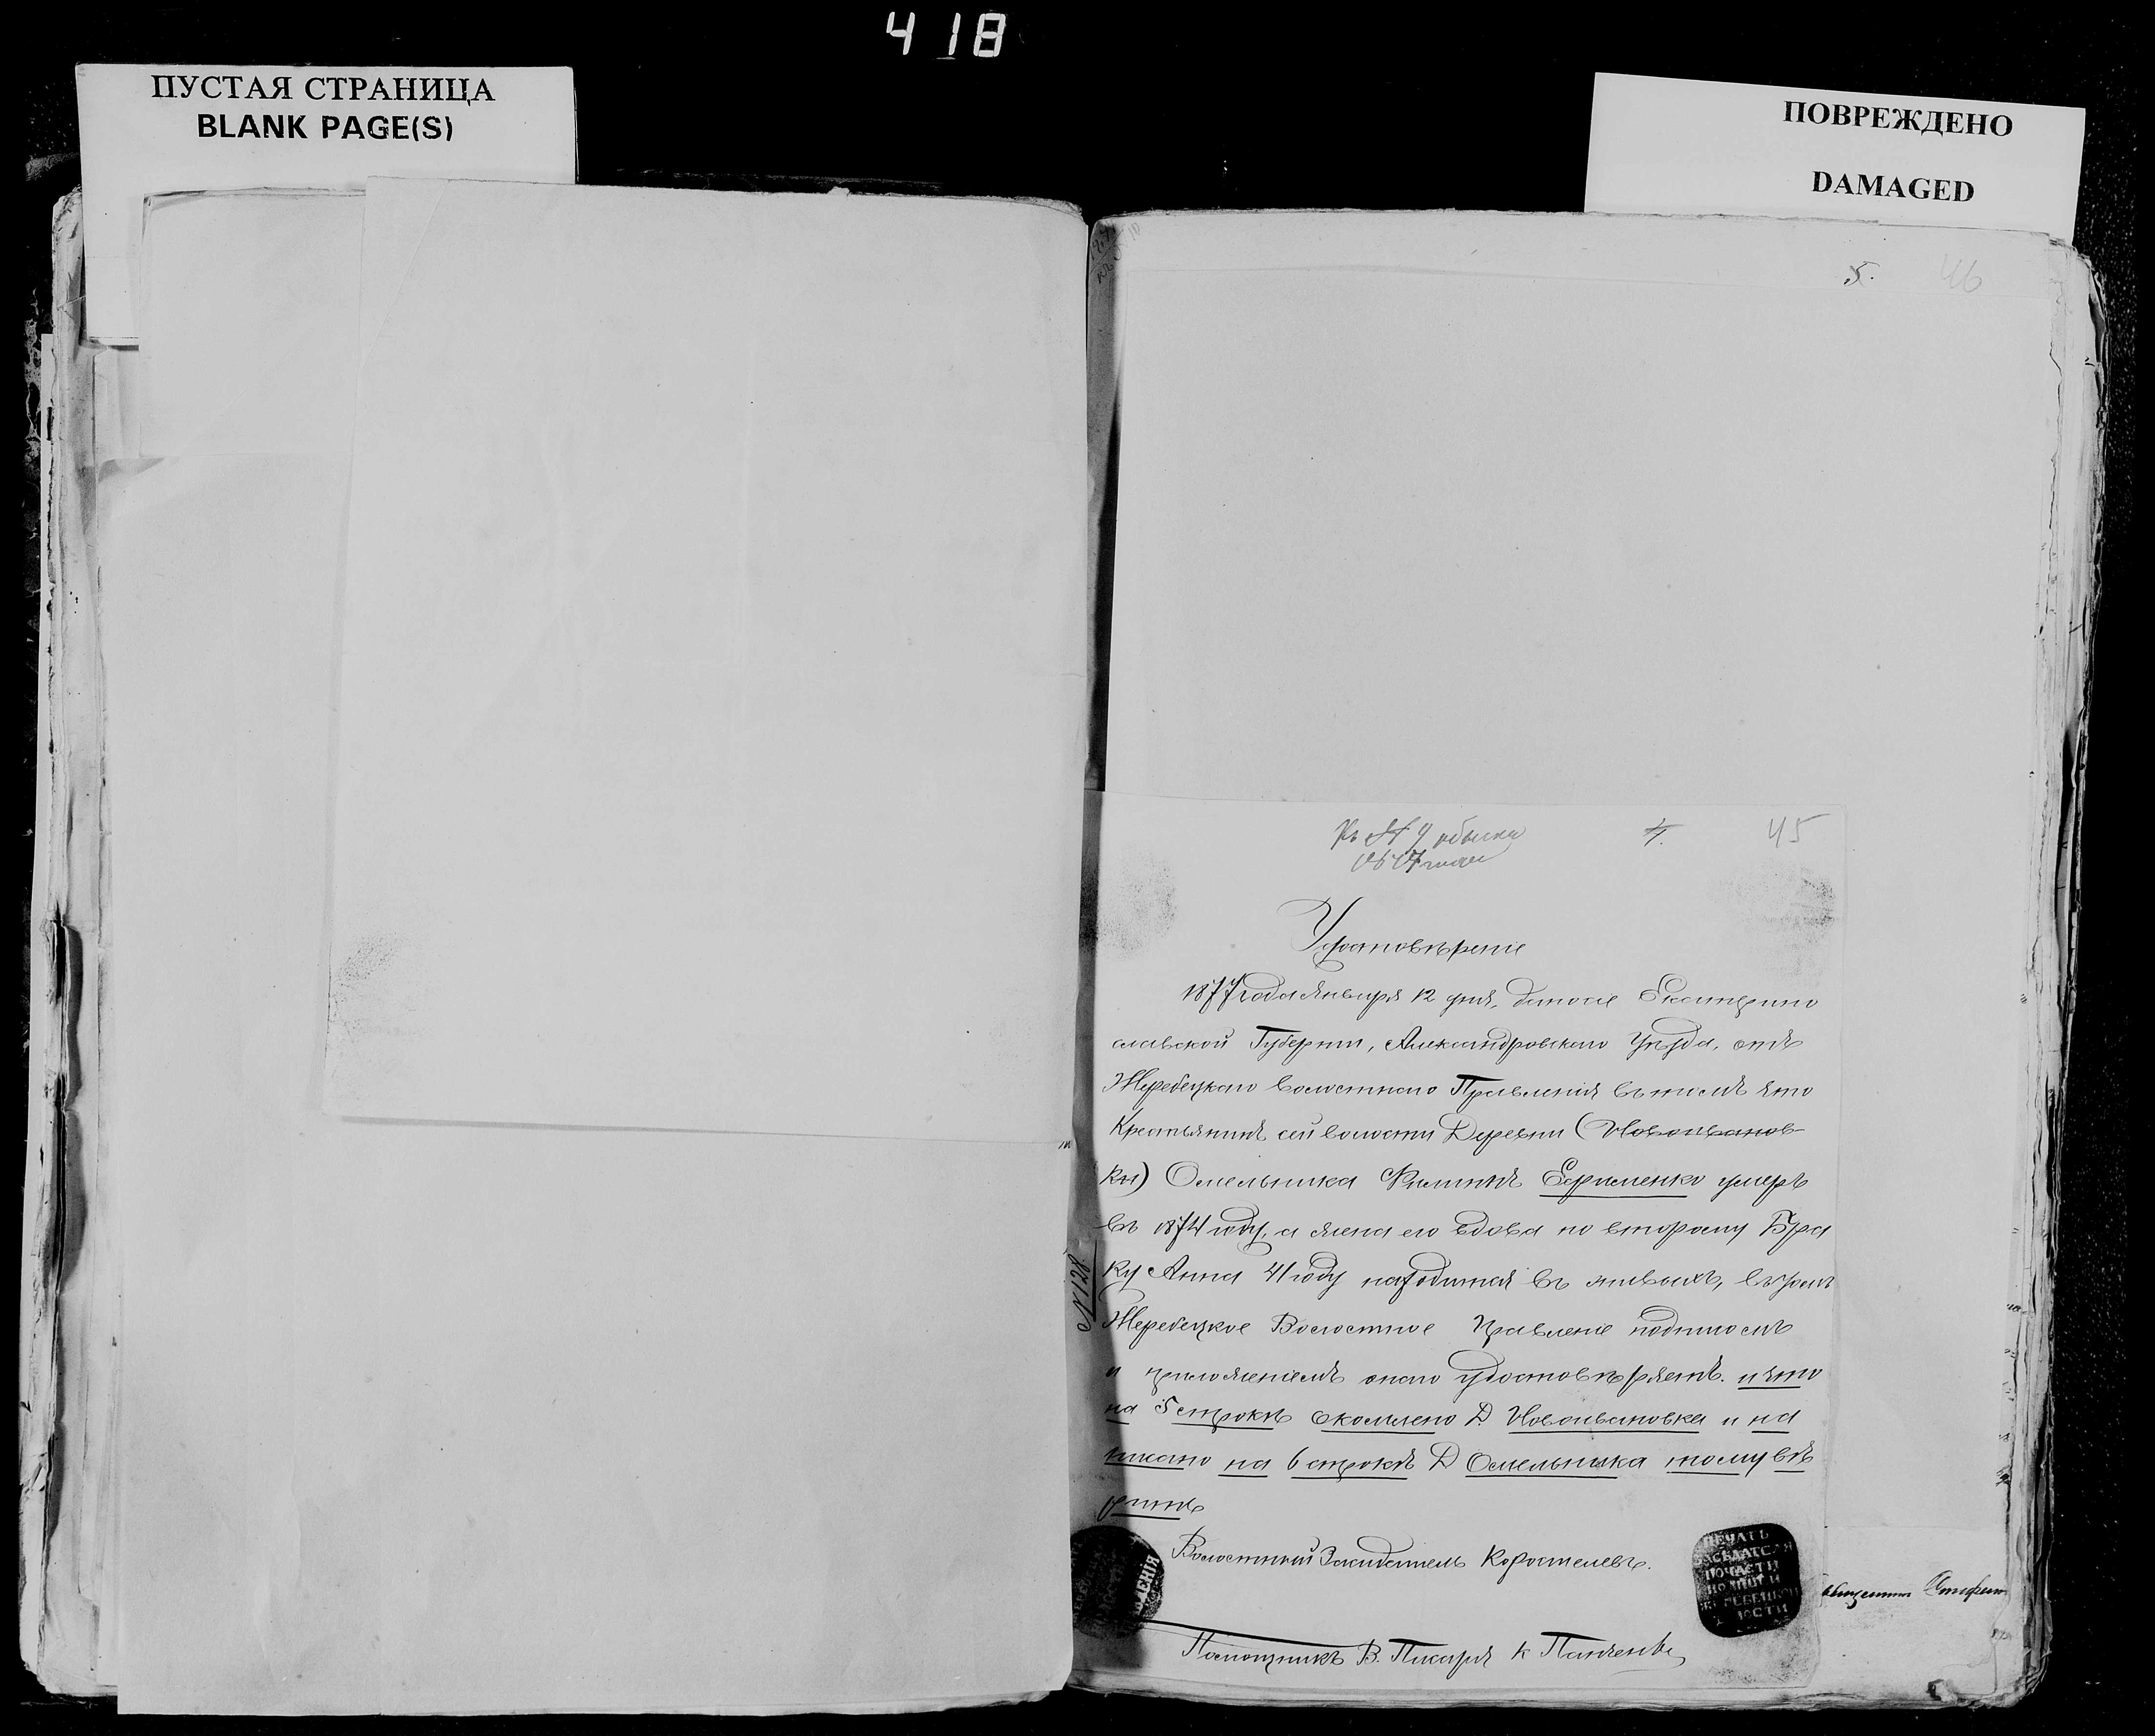 418
ПУСТАЯ СТРАНИЦА
BLANK PAGE(S)
ПОВРЕЖДЕНО
DAMAGED
5. 46
Къ № 9 обыска
4. 45
Удостовѣреніе
1877 года Января 12 дня, дано сіе Екатерино
славской Губерніи, Александровскаго Уѣзда, отъ
Жеребецкаго Волостнаго Правленія въ томъ что
Крестьянинъ сей волости Деревни (Новоивановки
ки) Омельника Филиппъ Ефименко умеръ
въ 1874 году, а жена его вдова по второму Бра
ку Анна 41 году находится въ живыхъ, въ чемъ
Жеребецкое Волостное Правленіе подписомъ
и приложеніемъ удостовѣряетъ. и что
на 5 строкѣ Д. Новоивановка и на
писано на 6 строкѣ Д Омельника тому вѣ
рить
№ 128
Волостный Засидатель Коростелевъ.
ПЕЧАТЬ
Помощникъ В. Писаря К Панченко